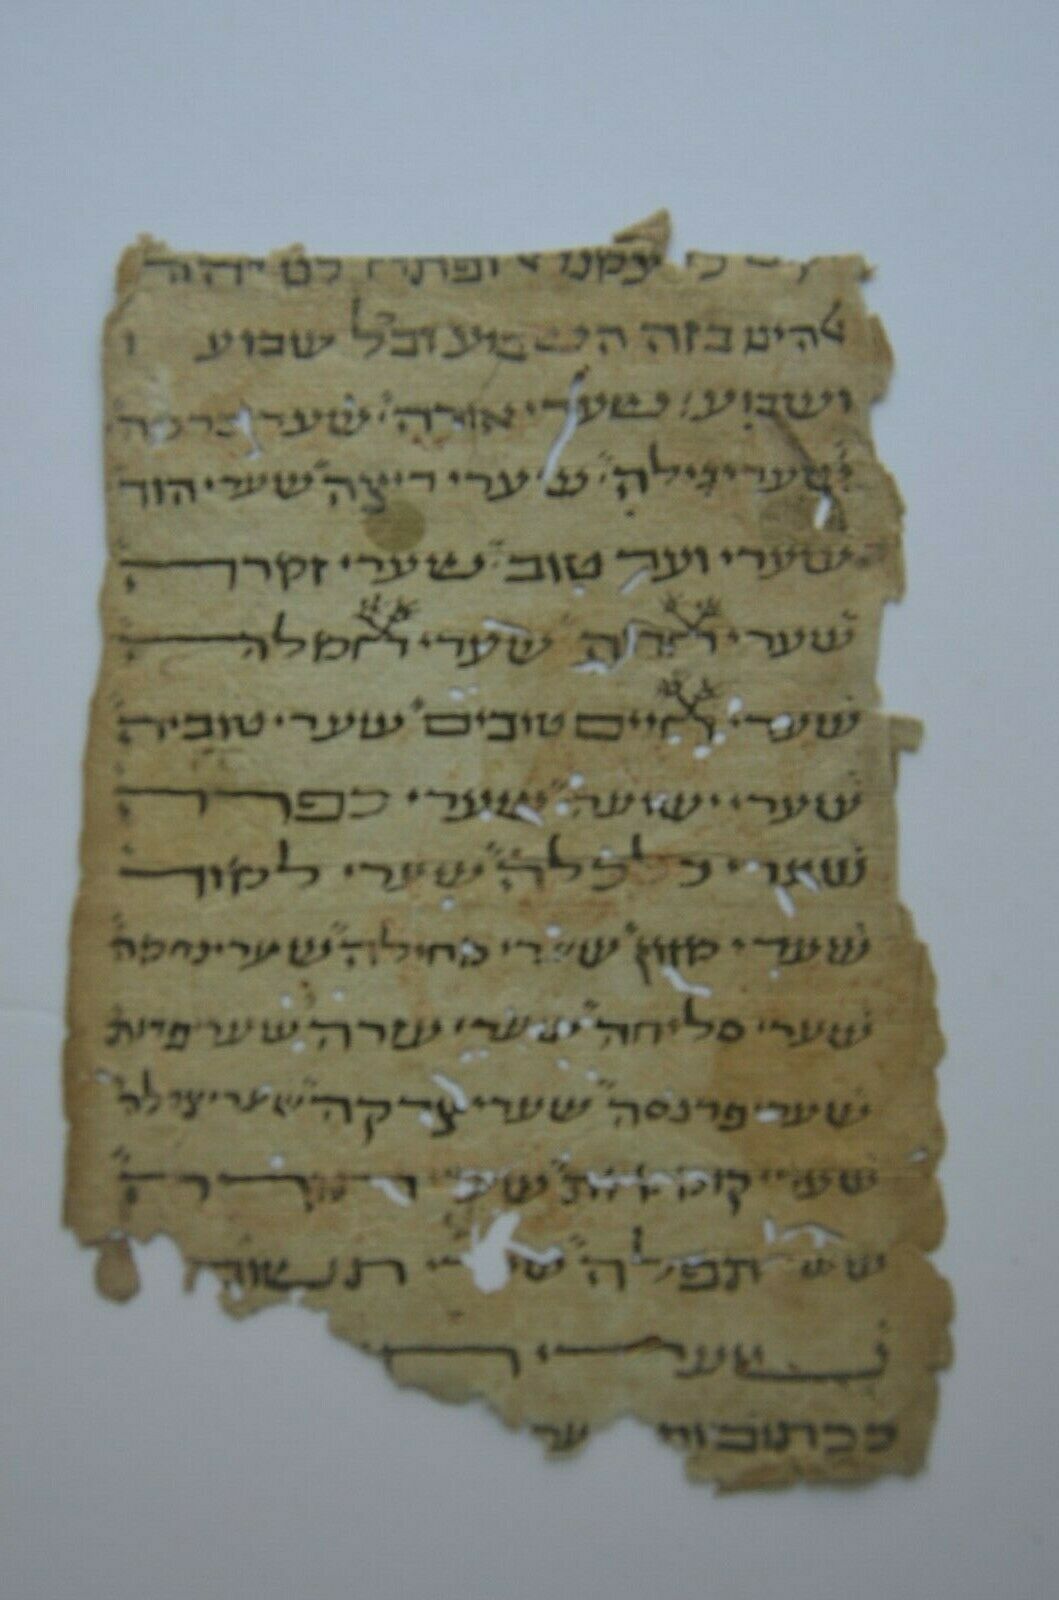 ופתח לנו יהוה
אלהינו בזה השבוע ובכל שבוע ו
ושבוע שערי אורה שערי ברכה
שערי גילה שערי דיצה שערי הוד
שערי ועד טוב שערי זמרה
שערי חדוה שערי חמלה
שערי חיים טובים שערי טוביה
שערי ישועה שערי כפרה
שערי כלכלה שערי למוד
שערי מזון שערי מחילה שערי נחמה
שערי סליחה שערי עזרה שערי פדות
שערי פרנסה שערי צדקה שערי צהלה
שערי קוממיות שערי
שערי תפלה שערי תשוה
שערי
ככתוב